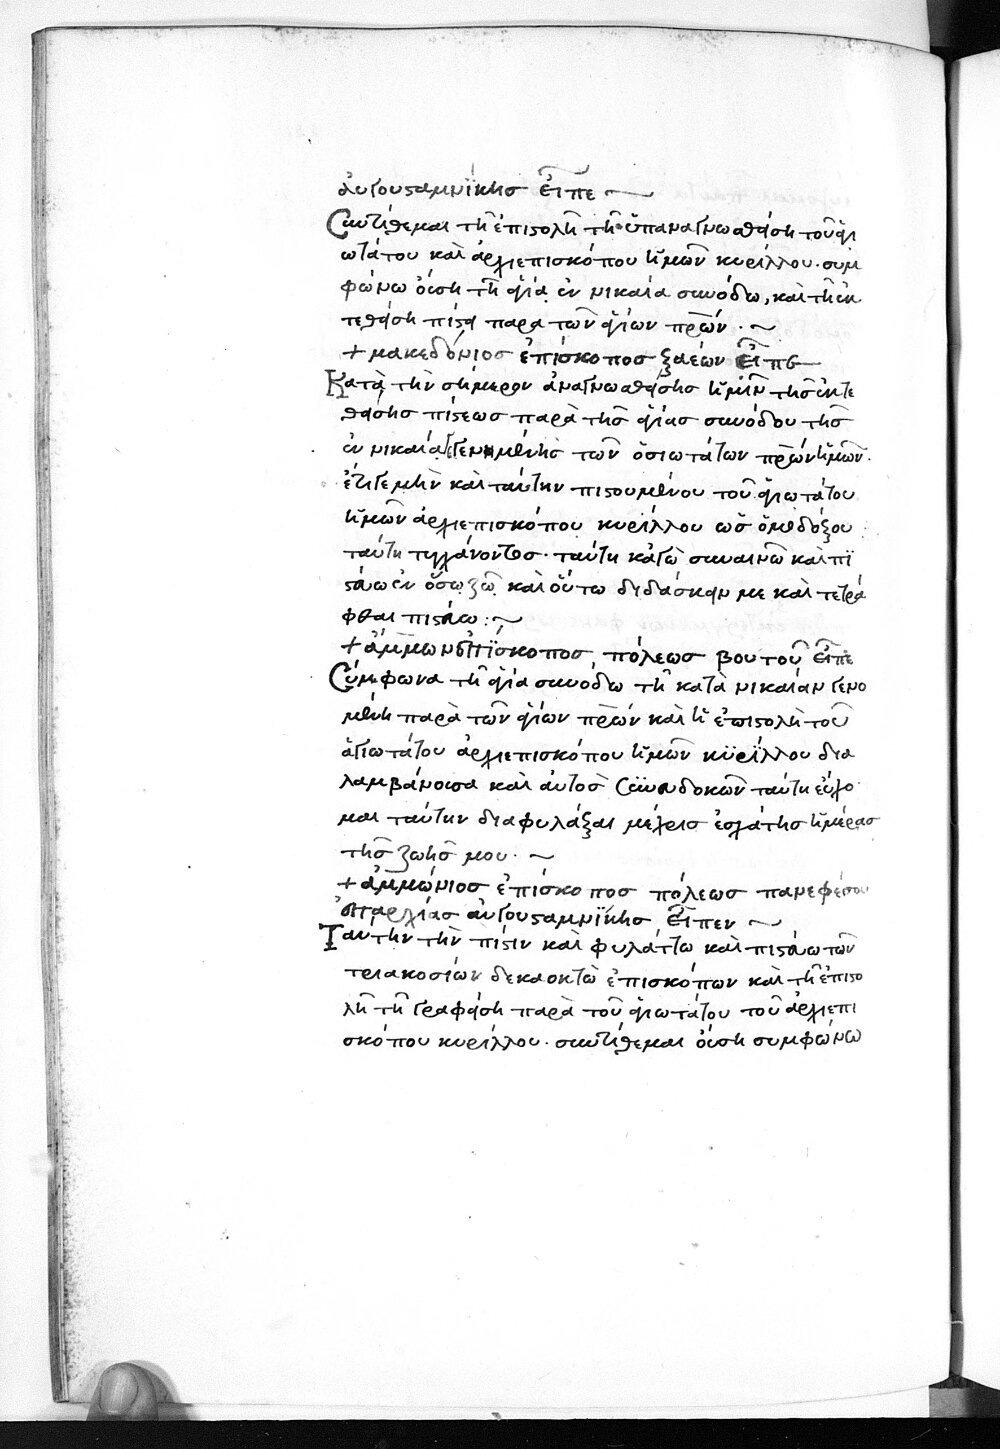 ἀυγουσαμνϊκῆσ εἶπε
Συντίθεμαι τῆ ἐπιστολῆ τῆ ὑπαναγνωσθείση τοῦ ἁγι
ωτάτου καὶ ἀρχιεπισκόπου ἡμῶν κυρίλλου· συμ
φώνω ὀύση τῆ ἁγία ἐν νικαία συνόδω, καὶ τῆ ἐκ
τεθείση πίστει παρα τῶν ἁγίων πρῶν · ~
+ μακεδόνιοσ ἐπίσκοποσ ξαέων εἶπε
Κατὰ τὴν σήμερον ἀναγνωσθείσησ ἡμῖν τῆσ ἐκτε
θείσησ πίστεωσ παρὰ τῆσ ἁγίασ συνόδου τῆσ
ἐν νικαία γενομένησ τῶν ὁσιωτάτων πρῶν ἡμῶν·
ἔτι γε μὴν καὶ ταύτην πιστουμένου τοῦ ἁγιωτάτου
ἡμῶν ἀρχιεπισκόπου κυρίλλου ὡσ ὁμοδόξου
ταύτη τυγχάνοντοσ· ταύτη κἀγὼ συναινῶ καὶ πϊ
στεύω ἐν ὅσω ζῶ καὶ ὅυτω διδάσκειν με καὶ τετρά
φθαι πιστεύω : ~
+ ἄμμων ἐπΐσκοποσ πόλεωσ βουτοῦ εἶπε
Σύμφωνα τῆ ἁγία συνόδω τῆ κατὰ νικαίαν γενο
μένη παρὰ τῶν ἁγίων πρῶν καὶ ἡ ἐπιστολὴ τοῦ
ἁγιωτάτου ἀρχιεπισκόπου ἡμῶν κϋρίλλου δια
λαμβάνουσα καὶ ἀυτοσ συνευδοκῶν ταύτη εὔχο
μαι ταύτην διαφυλάξαι μέχρισ ἐσχάτησ ἡμέρασ
τῆσ ζωῆσ μου · ~
+ ἀμμώνιοσ ἐπίσκοποσ πόλεωσ πανεφέσου
ἐπαρχίασ ἀυγουσταμνϊκῆσ εἶπεν ~
Ταύτην τὴν πίστιν καὶ φυλάττω καὶ πιστεύω τῶν
τριακοσίων δεκαοκτὼ ἐπισκόπων καὶ τῆ ἐπιστο
λῆ τῆ γραφείση παρὰ τοῦ ἁγιωτάτου τοῦ ἀρχιεπι
σκόπου κυρίλλου· συντίθεμαι ὀύση συμφώνω